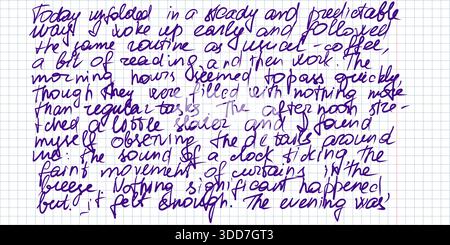 Today unfolded in a steady and predictable
way. I woke up early and followed
the same routine as usual - coffee,
a bit of reading and then work. The
morning hours seemed to pass quickly,
though they were filled with nothing more
than regular tasks. The afternoon stre-
tched a little slower and I found
myself observing the details around
me: the sound of a clock ticking, the
faint movement of curtains in the
breeze. Nothing significant happened,
but it felt enough. The evening was
alamy
Image ID: 3DD7GT3
www.alamy.com